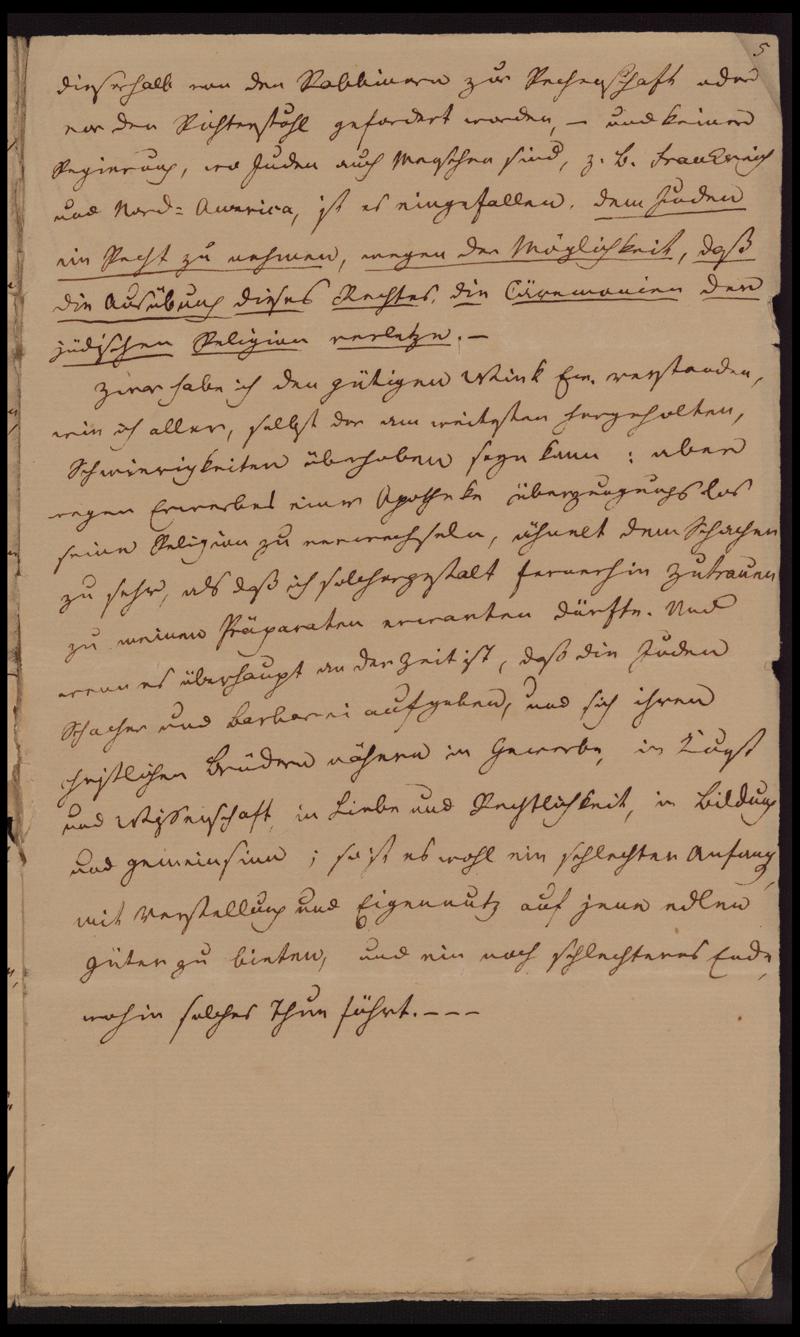 5
dieserhalb von den Rabbinern zur Rechenschaft oder
vor den Richterstuhl gefordert worden, – und keiner
Regierung, wo Juden auch Menschen sind, z. B. Frankreich
und Nord=America, ist es eingefallen, dem Juden
ein Recht zu nehmen, wegen der Möglichkeit, daß
die Ausübung dieses Rechtes, die Cäremonien der
jüdischen Religion verletze. –
Zwar habe ich den gütigen Wink Ew. verstanden,
wie ich aller, selbst der am weitesten hergeholten,
Schwierigkeiten überhoben seyn kann: aber
wegen Erwerbes einer Apotheke überzeugungslos
seine Religion zu verwechseln, ähnelt dem Schachern
zu sehr, als daß ich solchergestalt fernerhin Zutrauen
zu meinen Präparaten erwarten dürfte. Und
wenn es überhaupt an der Zeit ist, daß die Juden
Schacher und Barbarei aufgeben, und sich ihren
christlichen Brüdern nähern in Gewerbe, in Kunst
und Wissenschaft, in Liebe und Rechtlichkeit, in Bildung
und Gemeinsinn; so ist es wohl ein schlechter Anfang,
mit Verstellung und Eigennutz auf jene edlen
Güter zu bieten, und ein noch schlechteres Ende,
wohin solches Thun führt. – – –